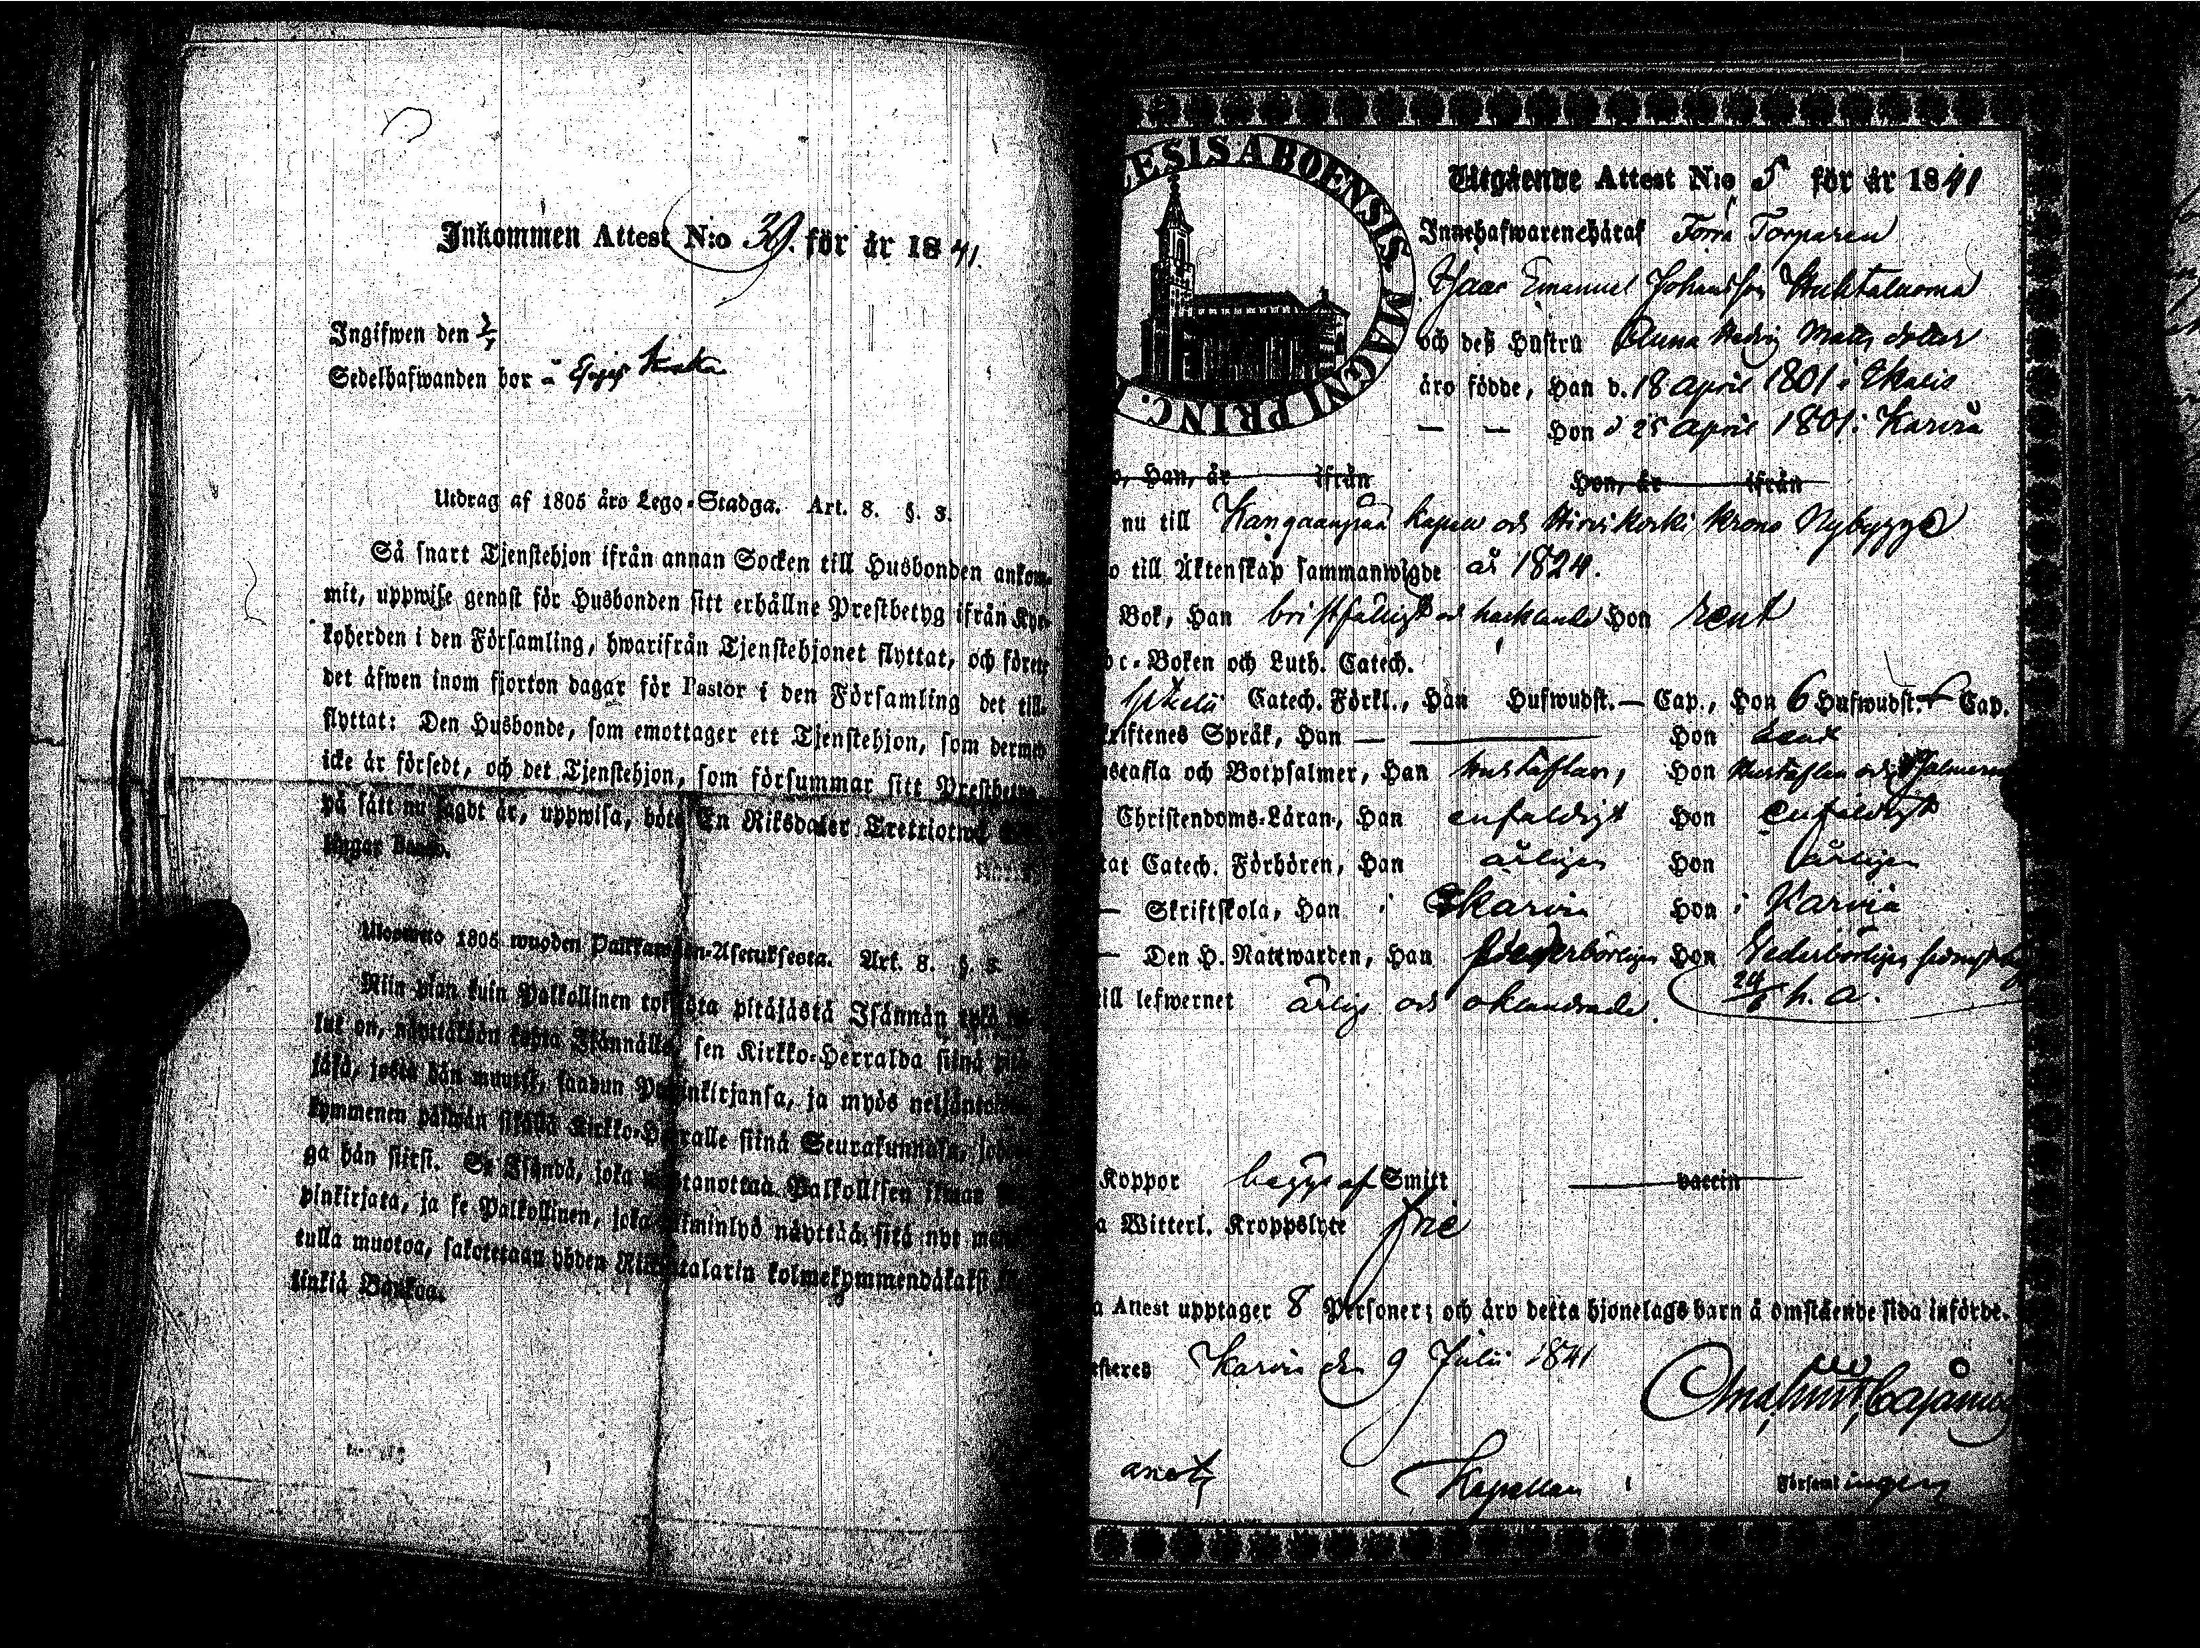 Inkommen Attest N:o 39. för år 1841.
Ingifwen den
Sedelhafwanden bor å
Utdrag af 1805 års Lego-Stadga. Art. 8. §. 3.
Så snart Tjenstehjon ifrån annan Socken till Husbonden ankom-
mit, uppwise genast för Husbonden sitt erhållne Prestbetyg ifrån Kyr-
koherden i den Församling, hwarifrån Tjenstehjonet flyttat, och förete
det äfwen inom fjorton dagar för Pastor i den Församling det till-
flyttat: Den Husbonde, som emottager ett Tjenstehjon, som dermed
icke är försedt, och det Tjenstehjon, som försummar sitt Prestbetyg
på sätt nu sagdt är, uppwisa, böte En Riksdaler Trettiotwå
Banco.
1805 wuoden Palkkawäen-Asetuksesta. Art. 8. §. 3.
Niin pian kuin Palkollinen toisesta pitäjästä Isännän tykö
lut on, näyttäköön kohta Isännälle, sen Kirkko-Herralda siinä pitä-
jäsä, josta hän muutti, saadun Papinkirjansa, ja myös neljäntoista
kymmenen päiwän sisällä Kirkko-Herralle siinä Seurakunnasa, johon-
ga hän siirsi. Se Isändä, joka wastanottaa Palkollisen ilman
pinkirjata, ja se Palkollinen, joka laiminlyö näyttää sitä nyt
tulla muotoa, sakotetaan yhden Riksitalarin kolmekymmendäkaksi
linkiä Bankoa.
ESIS ABOENSIS MAGNI PRINC.
Utgående Attest N:o 5 för år 1841
Innehafwarene härat Torparen
Isaac Emanuel Johansson Huhtaluoma
och deß Hustru Anna Hedvig Matts dotter
äro födde, Han d. 18 April 1801 i Ikalis
— — Hon d 25 April 1801 i Karvia
, Han, år ifrån Hon, år ifrån
nu till Kangaanpää Kapell och Hirvikoski Krono Nybygge
o till Äktenskap sammanwigde år 1824.
Bok, Han bristfälligt och hacklande Hon rent
bc-Boken och Luth. Catech.
Catech. Förkl., Han Hufwudst. — Cap., Hon 6 Hufwudst. Cap.
kriftenes Språk, Han — Hon
ustafla och Botpsalmer, Han Hustaflan, Hon Hustaflan och Psalmerne
Christendoms-Läran, Han enfaldigt Hon enfaldigt
tat Catech. Förhören, Han årligen Hon årligen
— Skriftskola, Han i Karvia Hon i Karvia
— Den H. Nattwarden, Han wederbörligen Hon wederbörligen
till lefwernet ärligt och oklandrade. h. a.
Koppor begge af Smitt vaccin
a Witterl. Kroppslyte frie
a Attest upptager 8 Personer; och äro detta hjonelags barn å omstående sida införde.
esteres Karvia den 9 Julii 1841
Cajanus
Kapellan i Församlingen